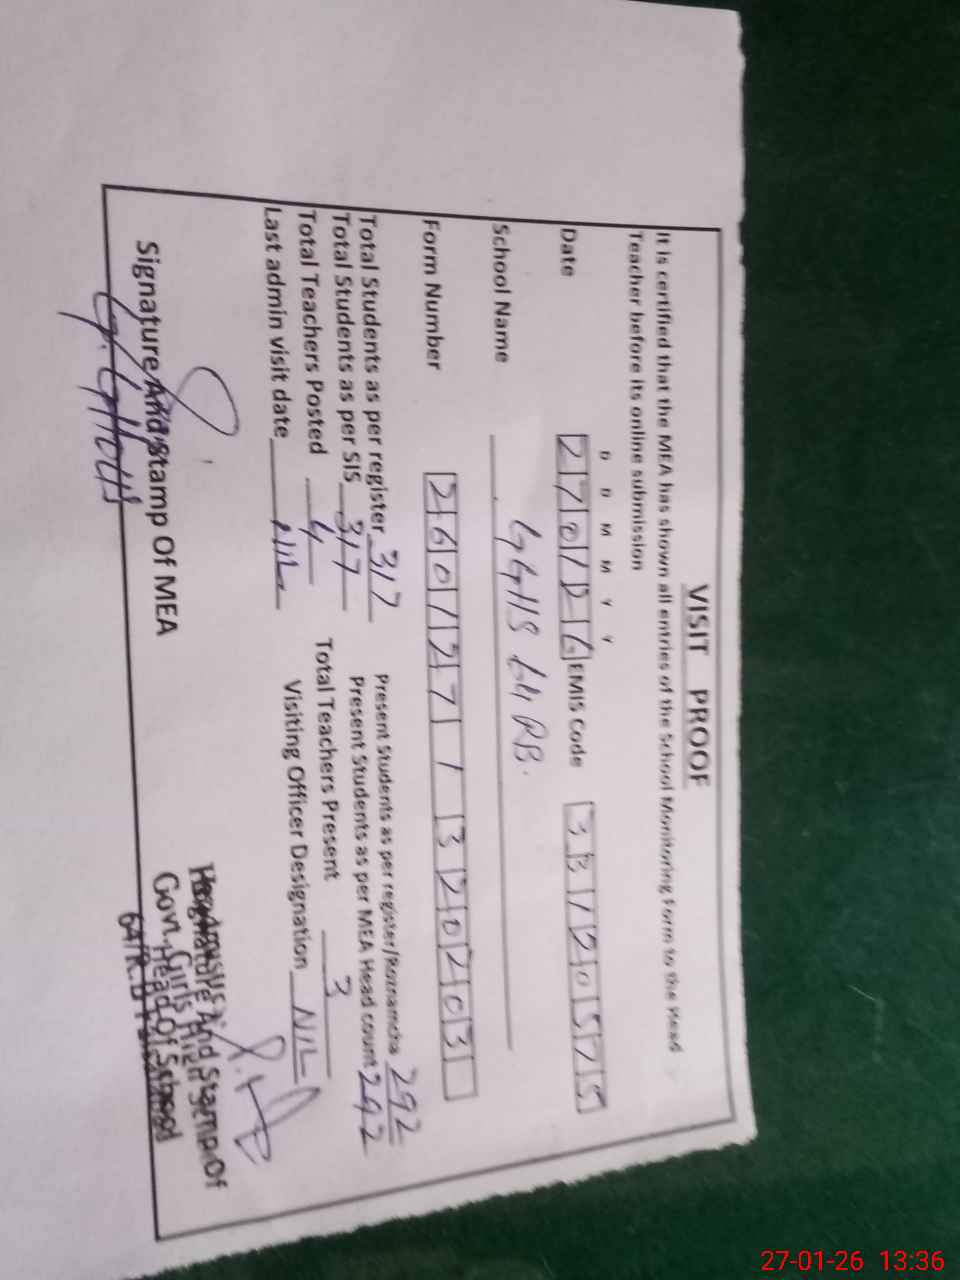 VISIT PROOF
It is certified that the MEA has shown all entries of the School Monitoring Form to the Head
Teacher before its online submission
D D M M Y Y
Date 270126 EMIS Code 33120575
School Name GGHS 64 RB.
Form Number 2601271320203
Total Students as per register 317 Present Students as per register/Roznamcha 292
Total Students as per SIS 317 Present Students as per MEA Head count 292
Total Teachers Posted 4 Total Teachers Present 3
Last admin visit date NIL Visiting Officer Designation NIL
Signature And Stamp Of MEA
Signature And Stamp Of
Head Of School
Headmistress
Govt. Girls High School
64/R.B
27-01-26 13:36